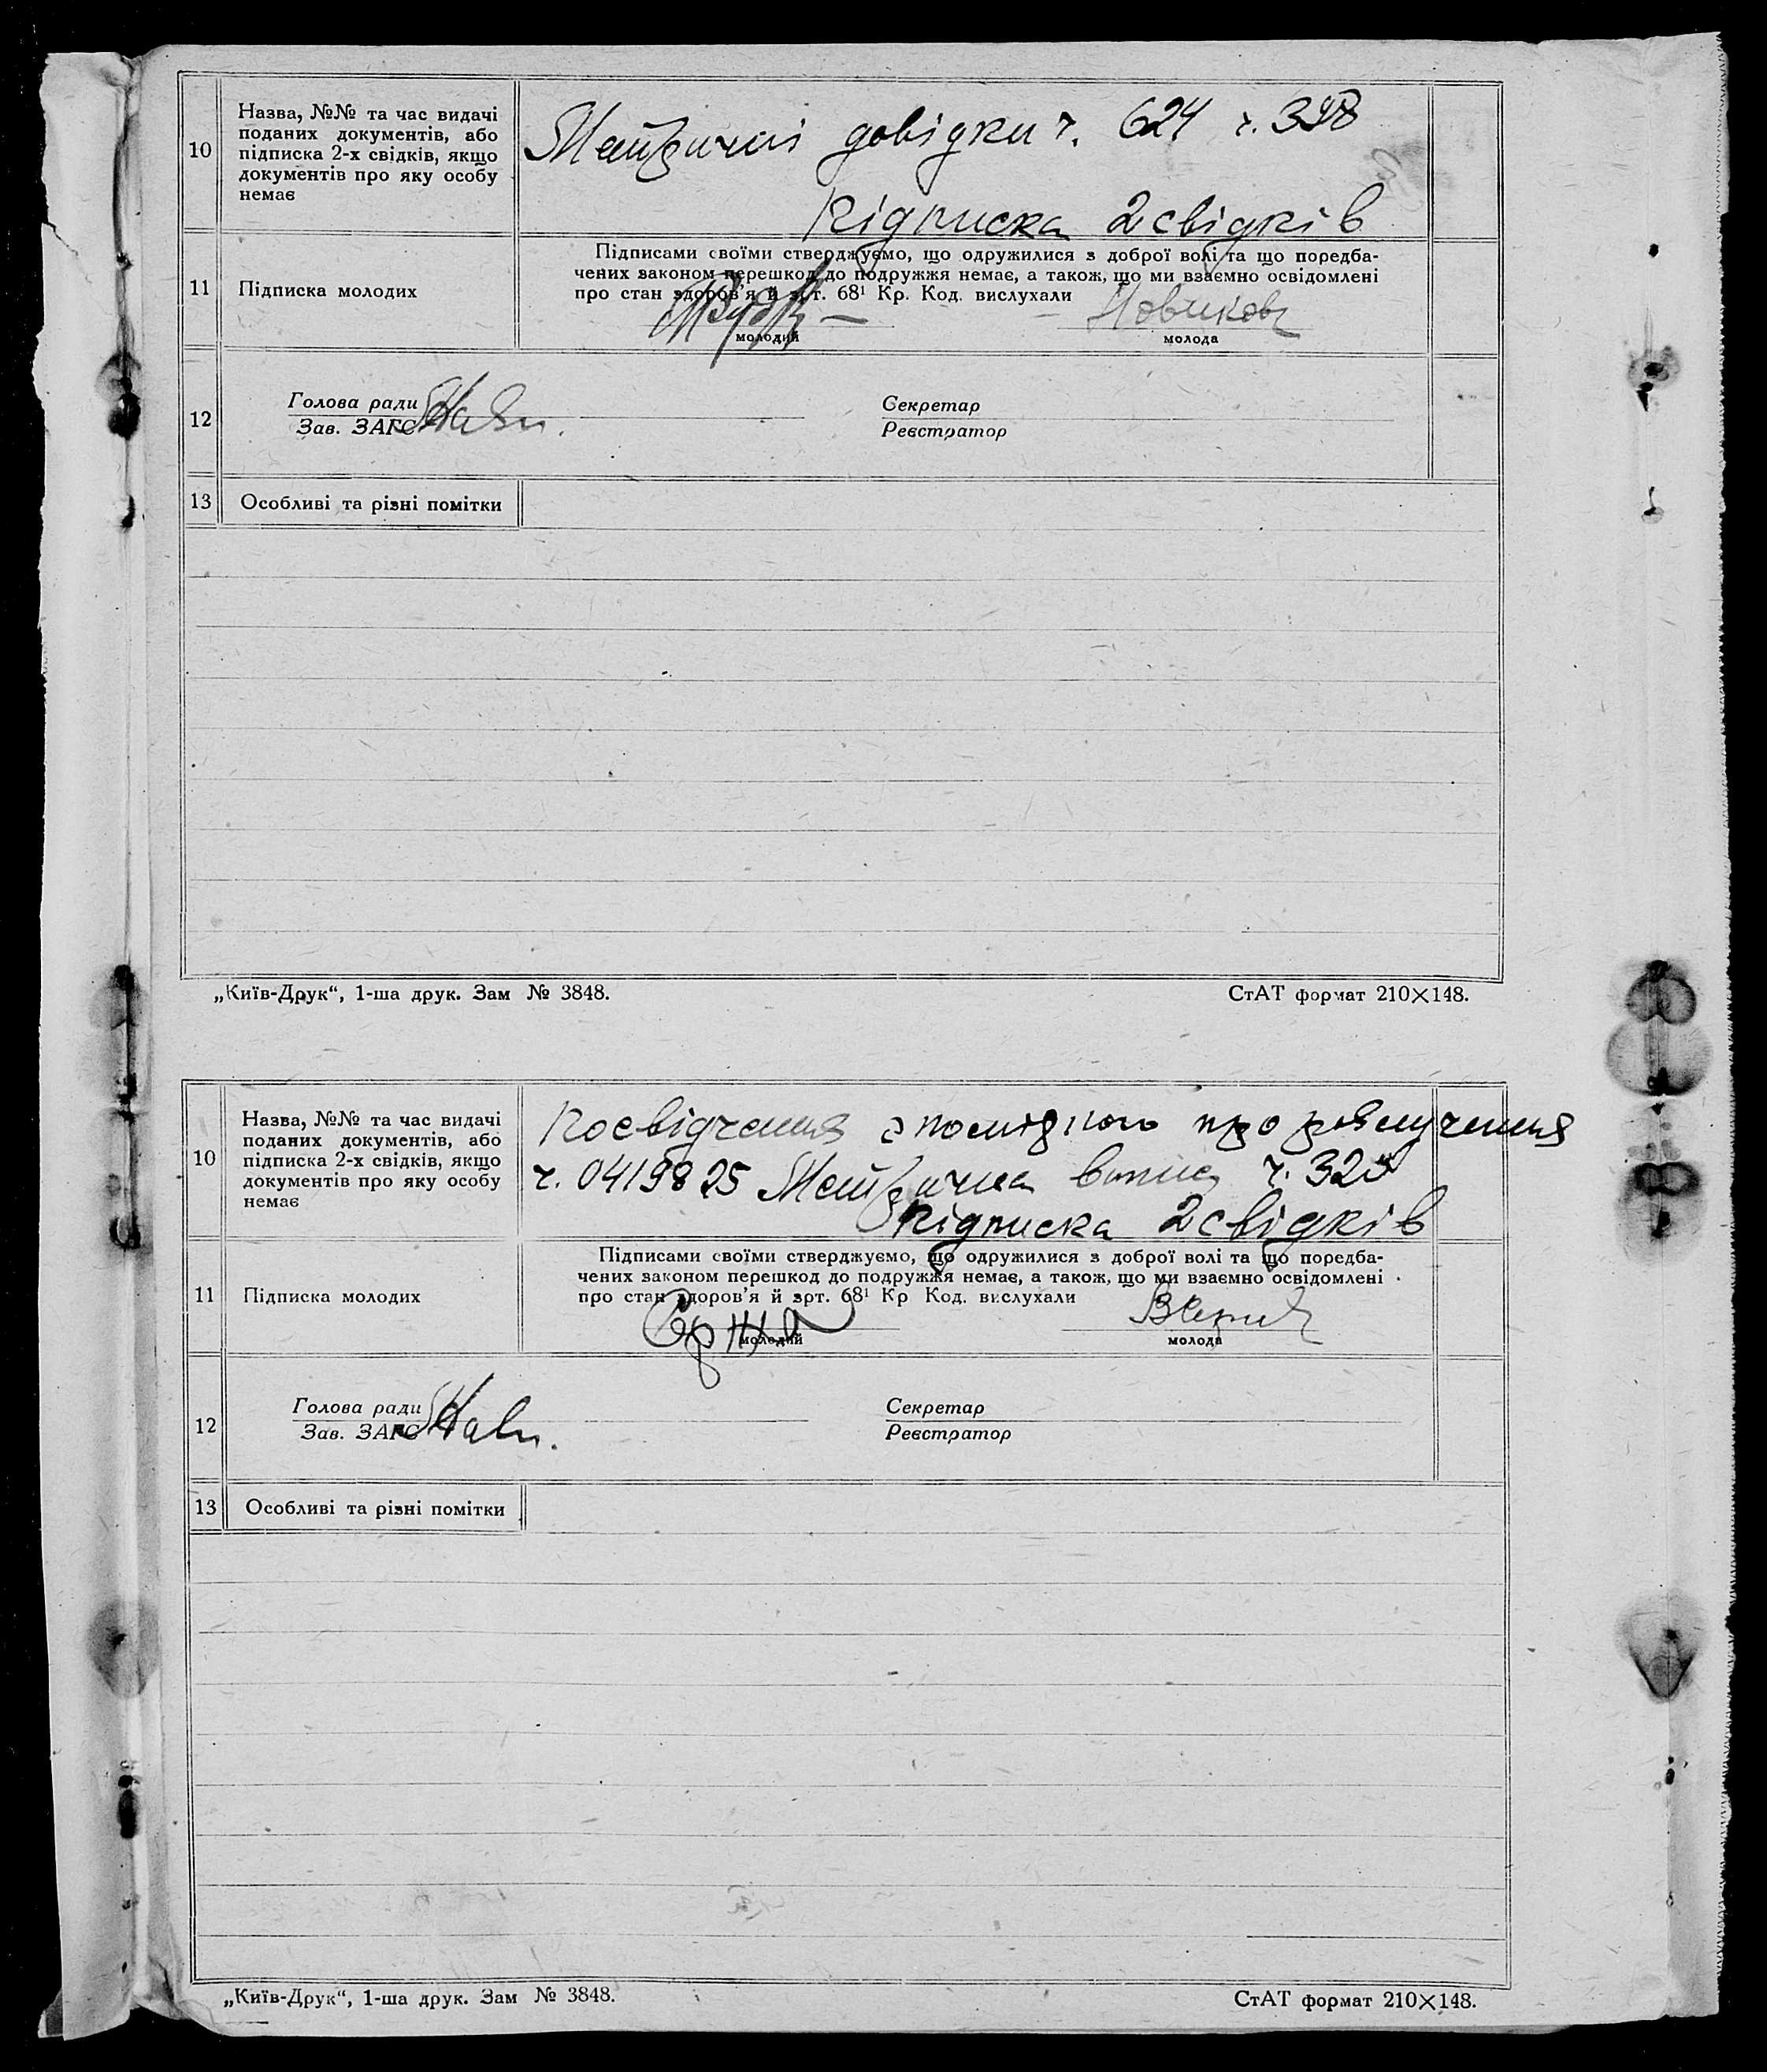 10
Назва, №№ та час видачі
поданих документів, або
підписка 2-х свідків, якщо
документів про яку особу
немає
Метричні довідки ч. 624 ч. 398
Підписка 2 свідків
11
Підписка молодих
Підписами своїми стверджуємо, що одружилися з доброї волі та що поредба-
чених законом перешкод до подружжя немає, а також, що ми взаємно освідомлені
про стан здоров'я й арт. 68¹ Кр. Код. вислухали
Новикова
молодий
молода
12
Голова ради
Зав. ЗАГС
Секретар
Реєстратор
13
Особливі та різні помітки
„Київ-Друк“, 1-ша друк. Зам № 3848.
СтАТ формат 210×148.
10
Назва, №№ та час видачі
поданих документів, або
підписка 2-х свідків, якщо
документів про яку особу
немає
Посвідчення про розлучення
ч. 0419825 Метрична ч. 325
підписка 2 свідків
11
Підписка молодих
Підписами своїми стверджуємо, що одружилися з доброї волі та що поредба-
чених законом перешкод до подружжя немає, а також, що ми взаємно освідомлені
про стан здоров'я й арт. 68¹ Кр Код. вислухали
молодий
молода
12
Голова ради
Зав. ЗАГС
Секретар
Реєстратор
13
Особливі та різні помітки
„Київ-Друк“, 1-ша друк. Зам № 3848.
СтАТ формат 210×148.